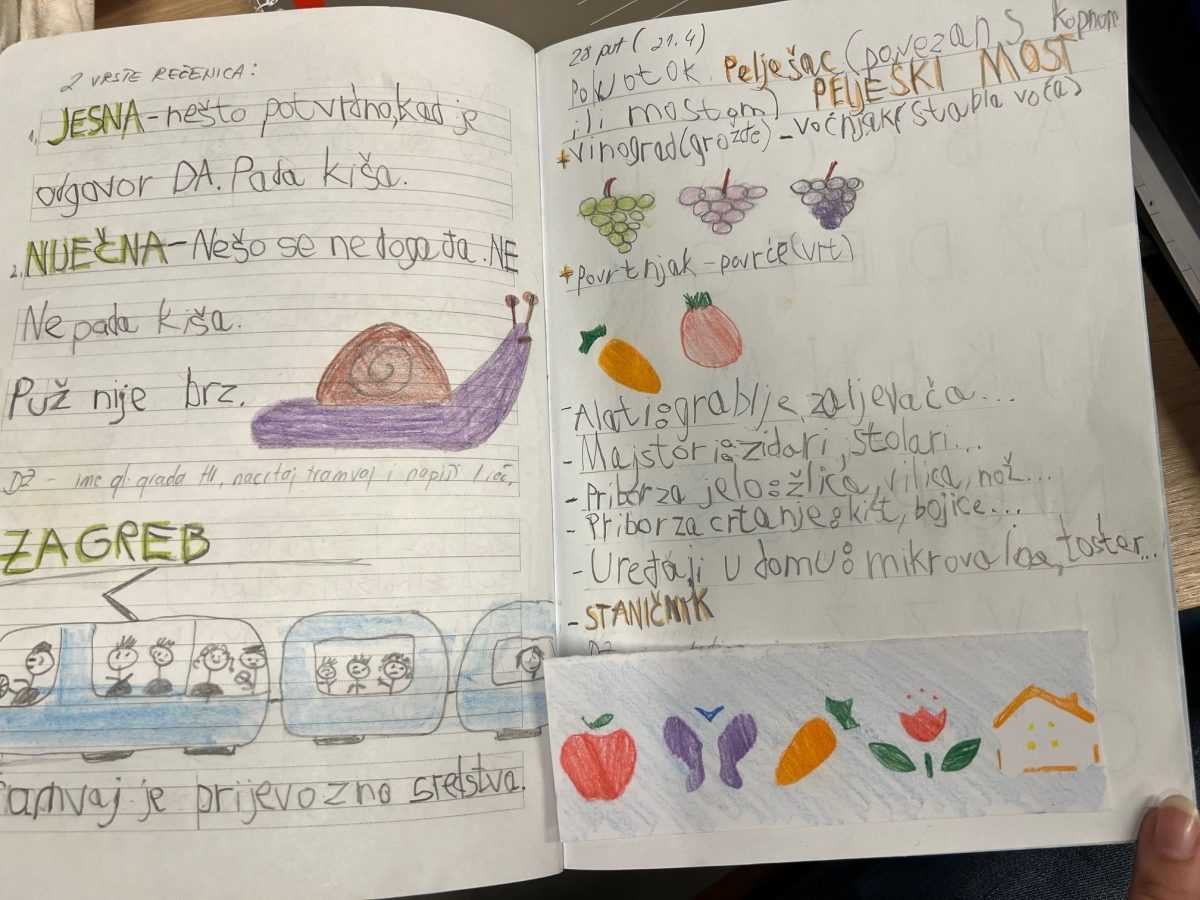 2 VRSTE REČENICA:
1. JESNA - nešto potvrdno, kad je
odgovor DA. Pada kiša.
2. NIJEČNA - Nešo se ne događa. NE
Ne pada kiša.
Puž nije brz.
DZ - ime gl. grada RH, nacrtaj tramvaj i napiši
ZAGREB
Tramvaj je prijevozno sredstva.
28 put (21.4)
Poluotok Pelješac (povezan s kopnom
ili mostom) PELJEŠKI MOST
+ vinograd (grožđe) - voćnjak (stabla voća)
+ Povrtnjak - povrće (vrt)
- Alati: grablje, zaljevača...
- Majstori: zidari, stolari...
- Pribor za jelo: žlica, vilica, nož...
- Pribor za crtanje: kist, bojice...
- Uređaji u domu: mikrovalna, toster...
- STANIČNIK
DZ